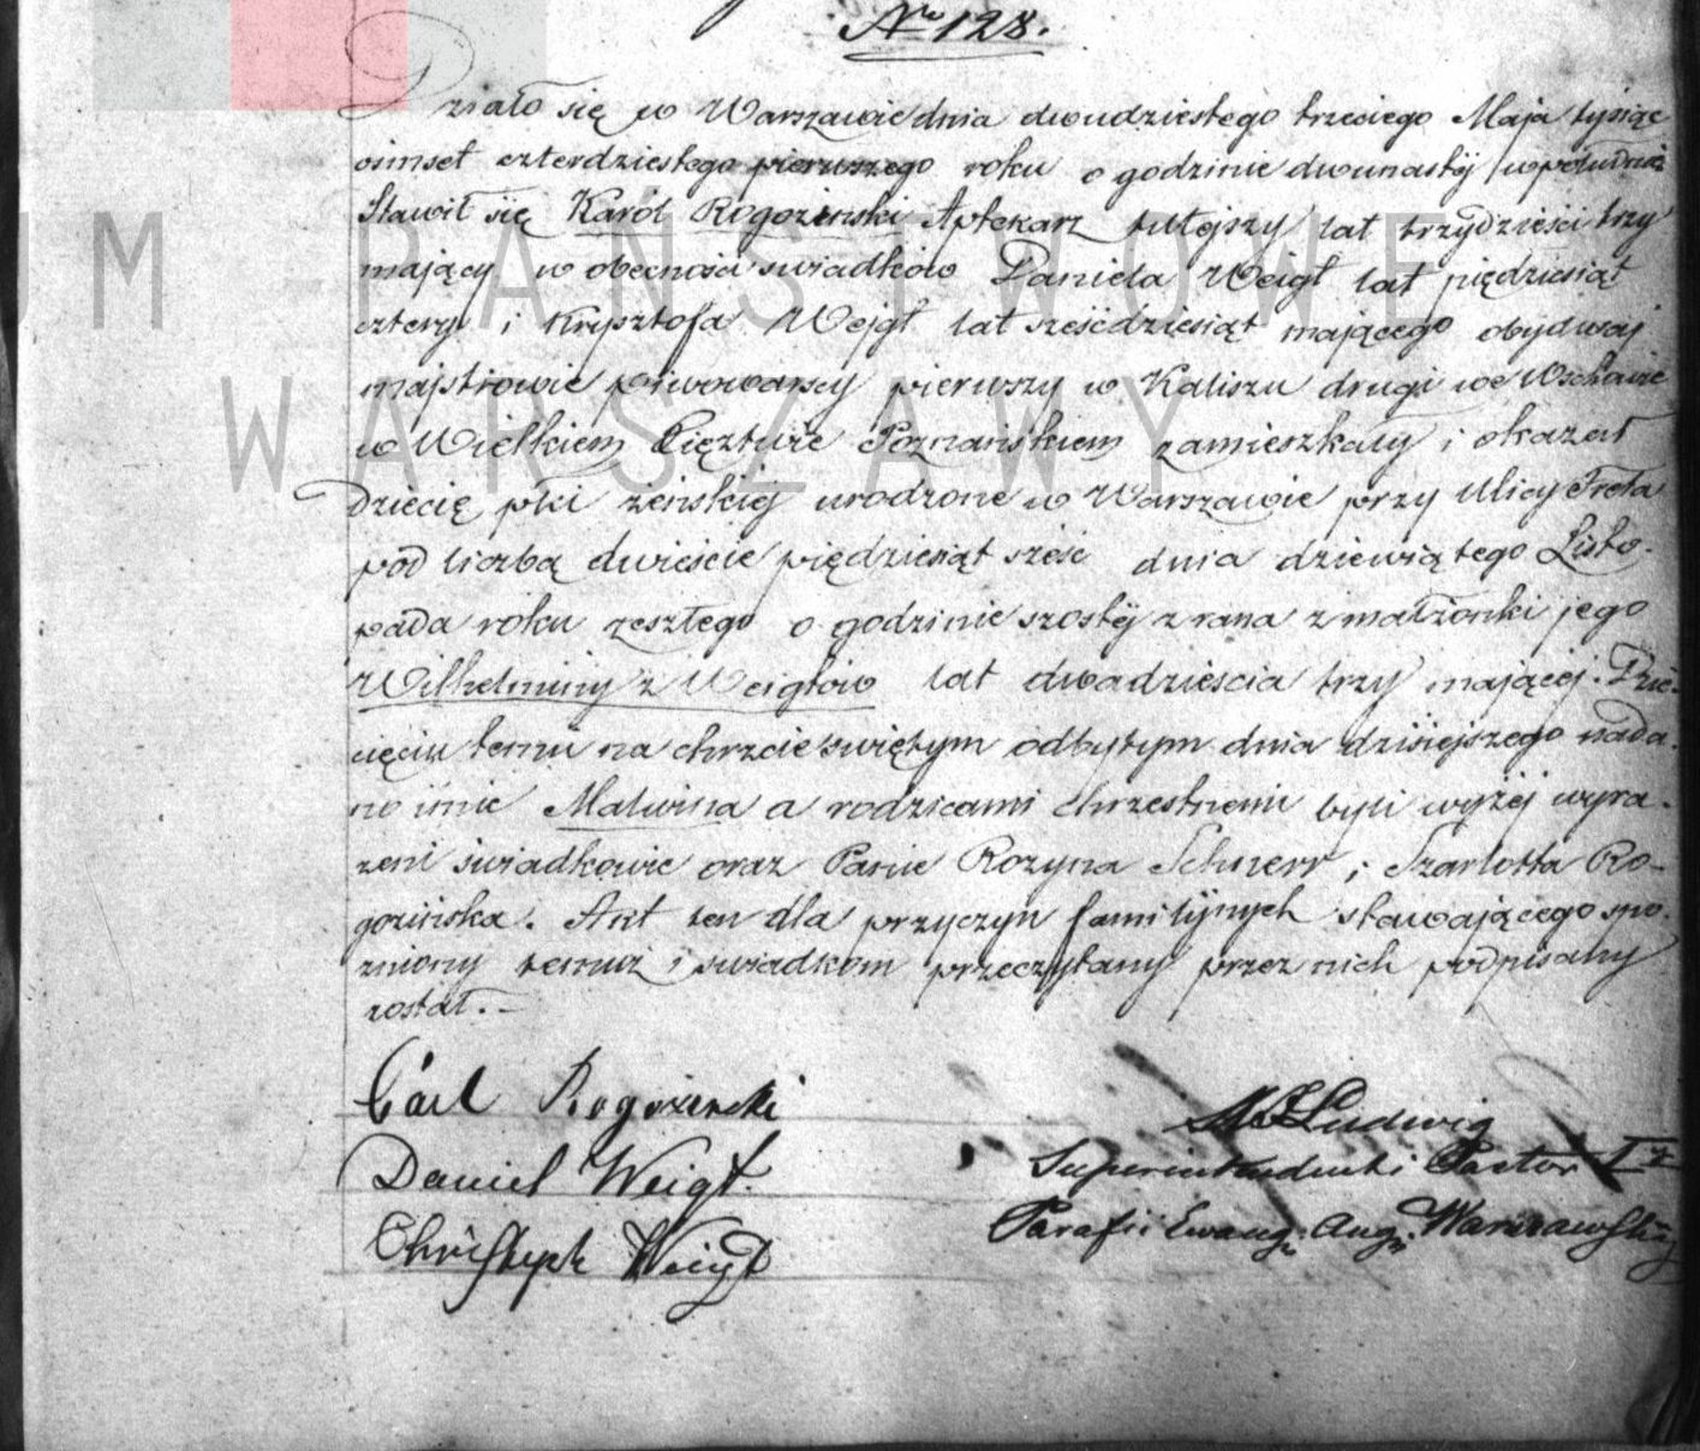 No 128.
Działo się w Warszawie dnia dwudziestego trzeciego Maja tysiąc
osmset czterdziestego pierwszego roku o godzinie dwunastéj w południe
Stawił się Karól Rogoziński Aptekarz tutejszy lat trzydzieści trzy
mający w obecności swiadków Daniela Weigt lat pięćdziesiąt
cztery i Krysztofa Wejgt lat sześćdziesiąt mającego obydwaj
majstrowie piwowarscy pierwszy w Kaliszu drugi we Wschowie
w Wielkiem Xięztwie Poznańskiem zamieszkały i okazał
Dziecię płci żeńskiéj urodzone w Warszawie przy Ulicy Freta
pod liczbą dwieście pięćdziesiąt sześć dnia dziewiątego Listo-
pada roku zeszłego o godzinie szostéj z rana z małżonki jego
Wilhelminy z Weigtów lat dwadzieścia trzy mającéj. Dzie-
cięciu temu na chrzcie świętym odbytym dnia dzisiejszego nada-
no imie Malwina a rodzicami chrzestnemi byli wyżéj wyra-
żeni świadkowie oraz Panie Rozyna Schnerr i Szarlotta Ro-
gozińska. Akt ten dla przyczyn familijnych stawającego spo-
zniony temuż i swiadkom przeczytany przez nich podpisany
został. –
Carl Rogozinski
Daniel Weigt.
Christoph Weigt
Ludwig
Superintendent i Pastor Iy
Parafii Ewang: Aug: Warszawskiéj
UM PAŃSTWOWE
WARSZAWY